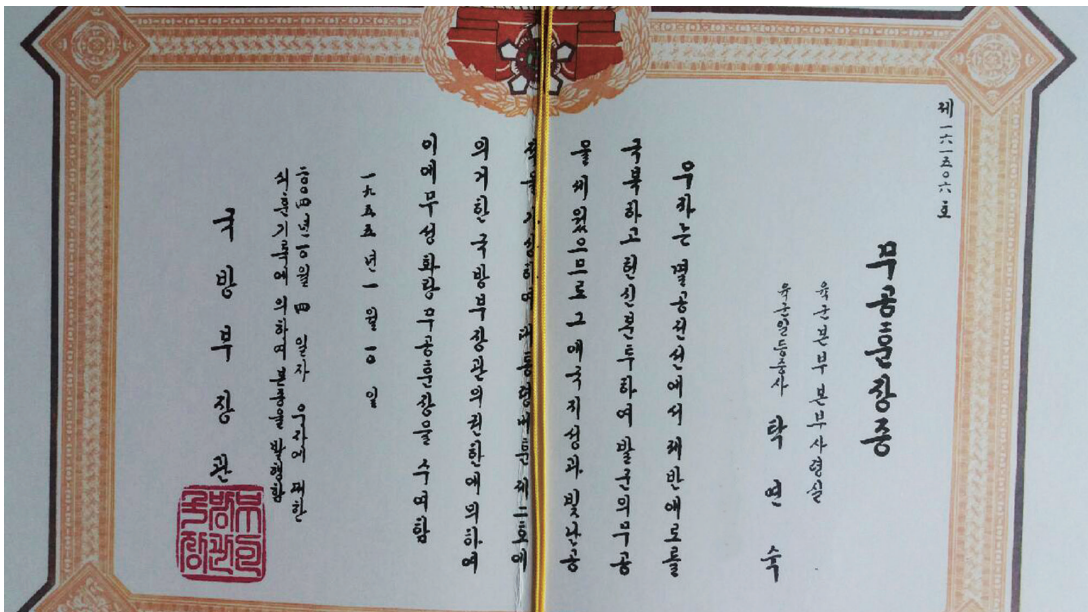 제一六一五〇六호
무공훈장증
육군본부 본부사령실
육군일등중사 탁연숙
우자는 멸공전선에서 제반애로를
극복하고 헌신분투하여 발군의무공
을세웠으므로 그애국지성과 빛난공
적을가상하여 대통령내훈제二호에
의거한 국방부장관의권한에의하여
이에무성화랑무공훈장을 수여함
一九五五년一월一〇일
일자 우자에 대한
서훈기록에 의하여 본증을 발행함
국방부장관
국방부장관인